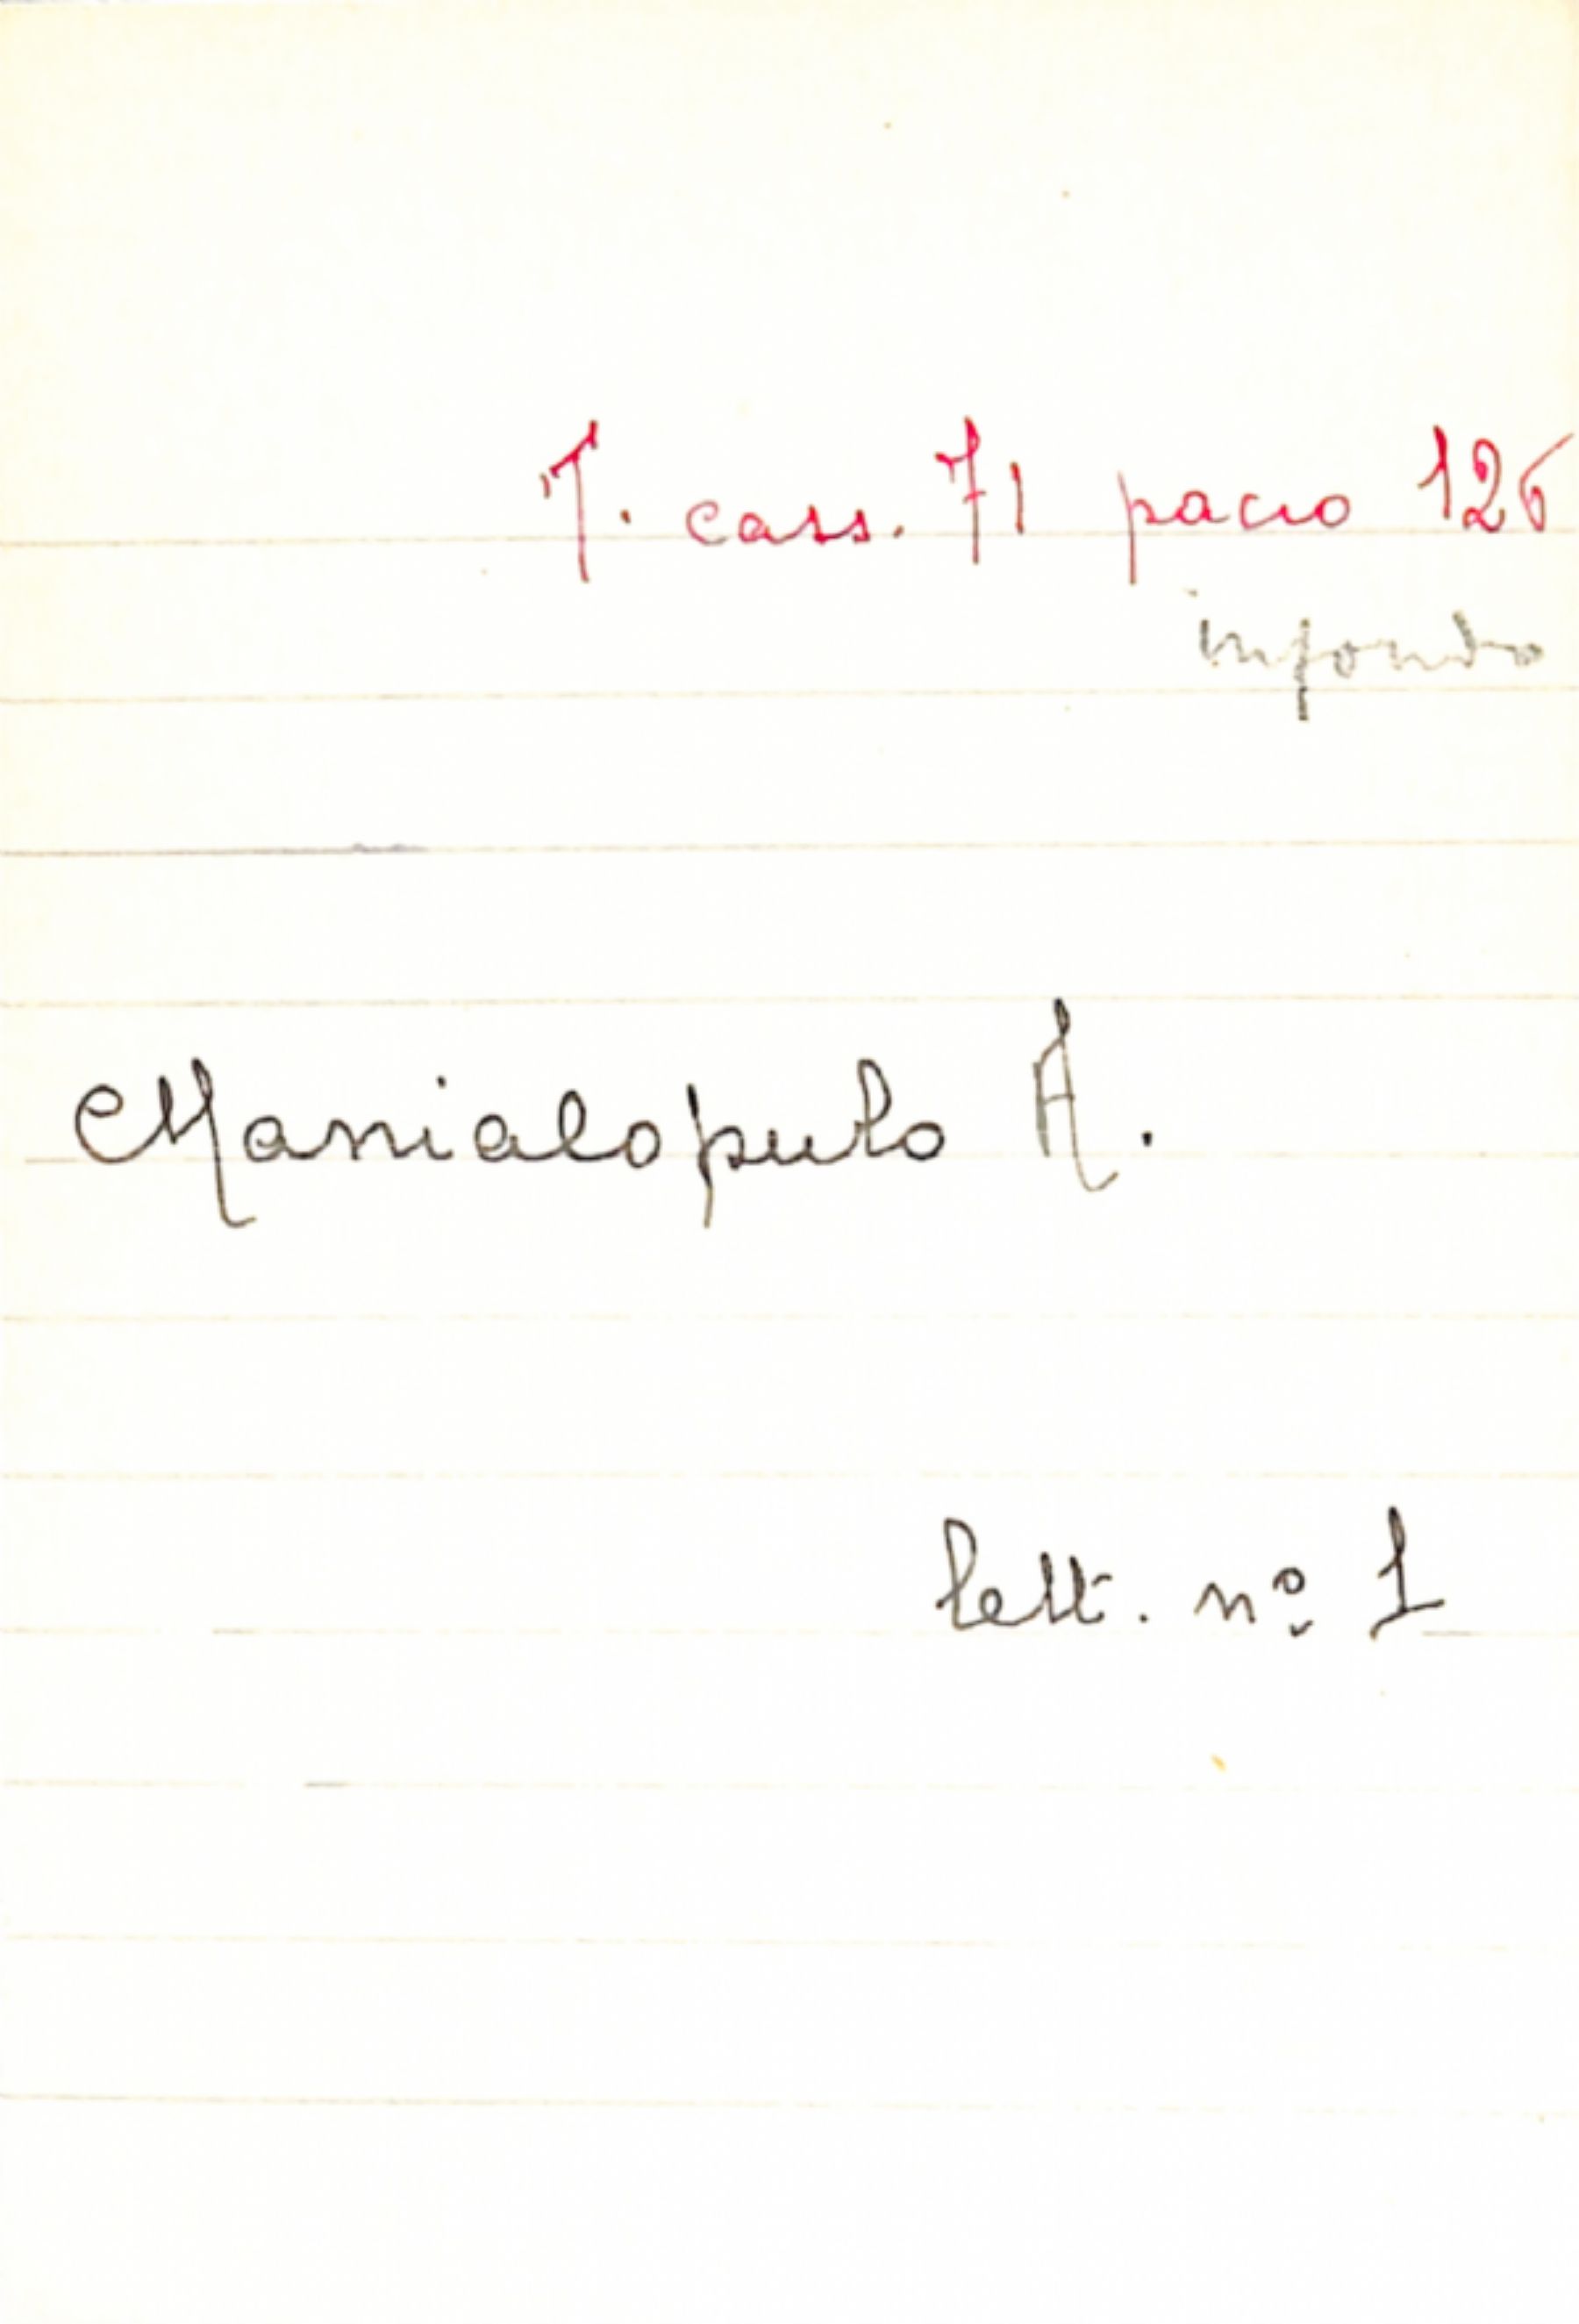 T. cass. 71 pacco 126
in fondo
Manialopulo A.
lett. nº 1